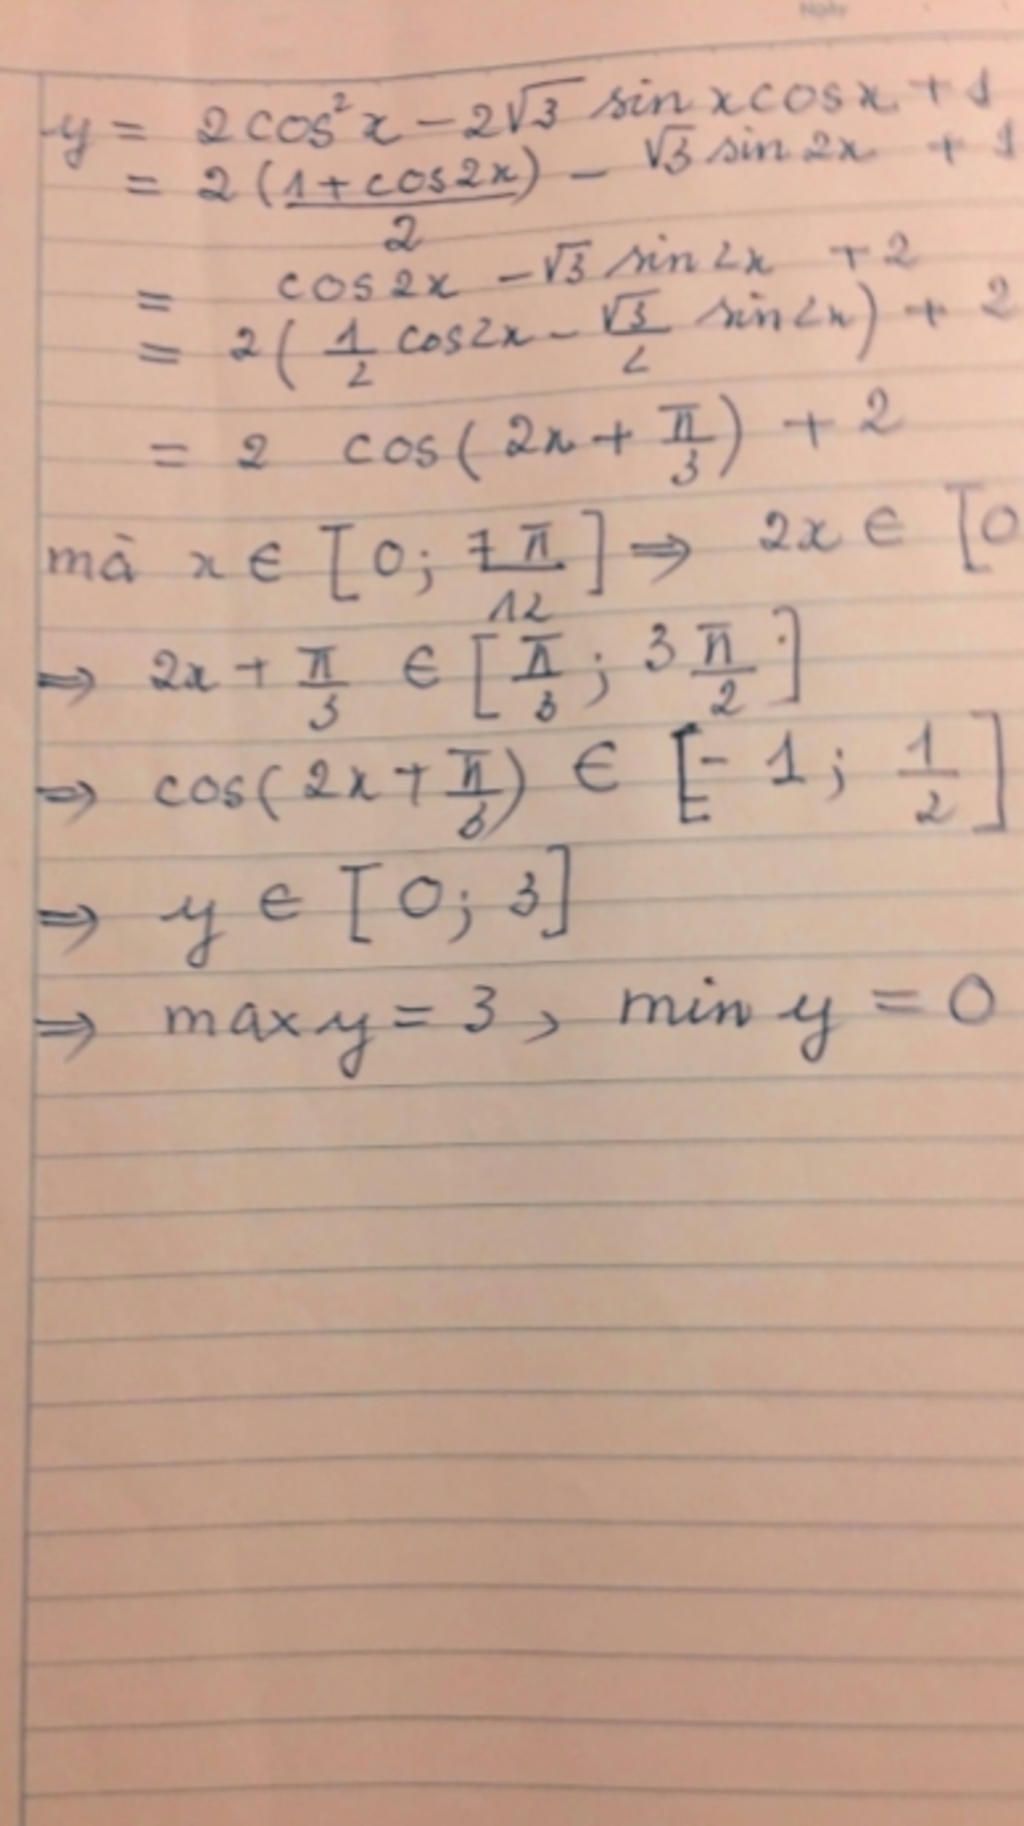 y = 2cos²x - 2√3 sinxcosx + 1
= 2(\frac{1+cos2x}{2}) - √3 sin2x + 1
= cos2x - √3 sin2x + 2
= 2(\frac{1}{2} cos2x - \frac{√3}{2} sin2x) + 2
= 2 cos(2x + \frac{π}{3}) + 2
mà x ∈ [0; \frac{7π}{12}] ⇒ 2x ∈ [0
⇒ 2x + \frac{π}{3} ∈ [\frac{π}{3}; 3\frac{π}{2}]
⇒ cos(2x + \frac{π}{3}) ∈ [-1; \frac{1}{2}]
⇒ y ∈ [0; 3]
⇒ max y = 3, min y = 0